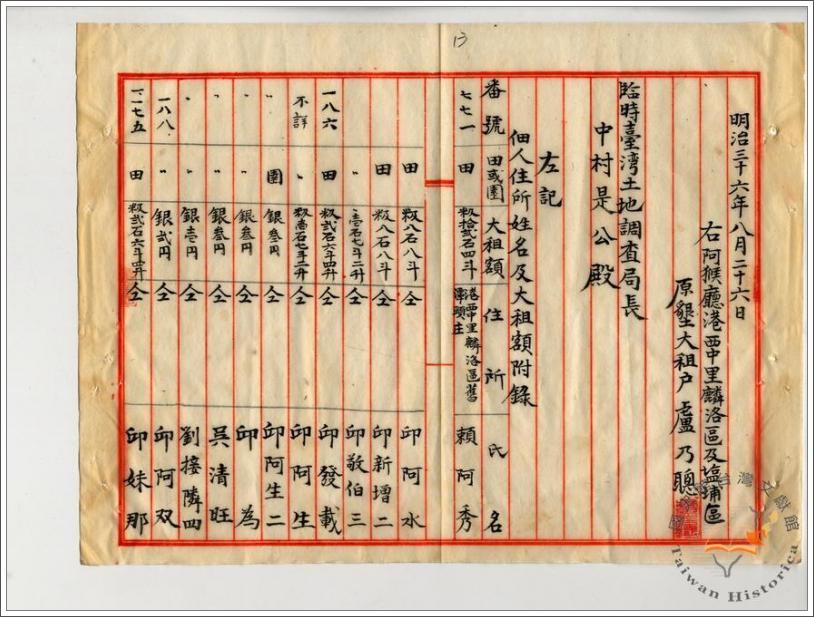 13
明治三十六年八月二十六日
右阿猴廳港西中里麟洛區及塩埔區
原墾大租戶盧乃聰
臨時臺湾土地調查局長
中村是公殿
左記
佃人住所姓名及大租額附錄
番號 田或園 大租額 住所 氏名
七七一 田 籾拾貳石四斗 港西中里麟洛區舊潭頭庄 賴阿秀
田 籾八石八斗 仝 邱阿水
田 籾八石八斗 仝 邱新增二
〃 〃壱石七斗二升 仝 邱敬伯三
一八六 田 籾貳石六斗四升 仝 邱發載
不詳 〃 七斗二升 仝 邱阿生
〃 園 銀叁円 仝 邱阿生二
〃 〃 銀叁円 仝 邱為
〃 〃 銀叁円 仝 吳清旺
〃 〃 銀壱円 仝 劉接隣四
一八八 〃 銀貳円 仝 邱阿双
一一七五 田 籾貳石六斗四升 仝 邱妹那
Taiwan Historica